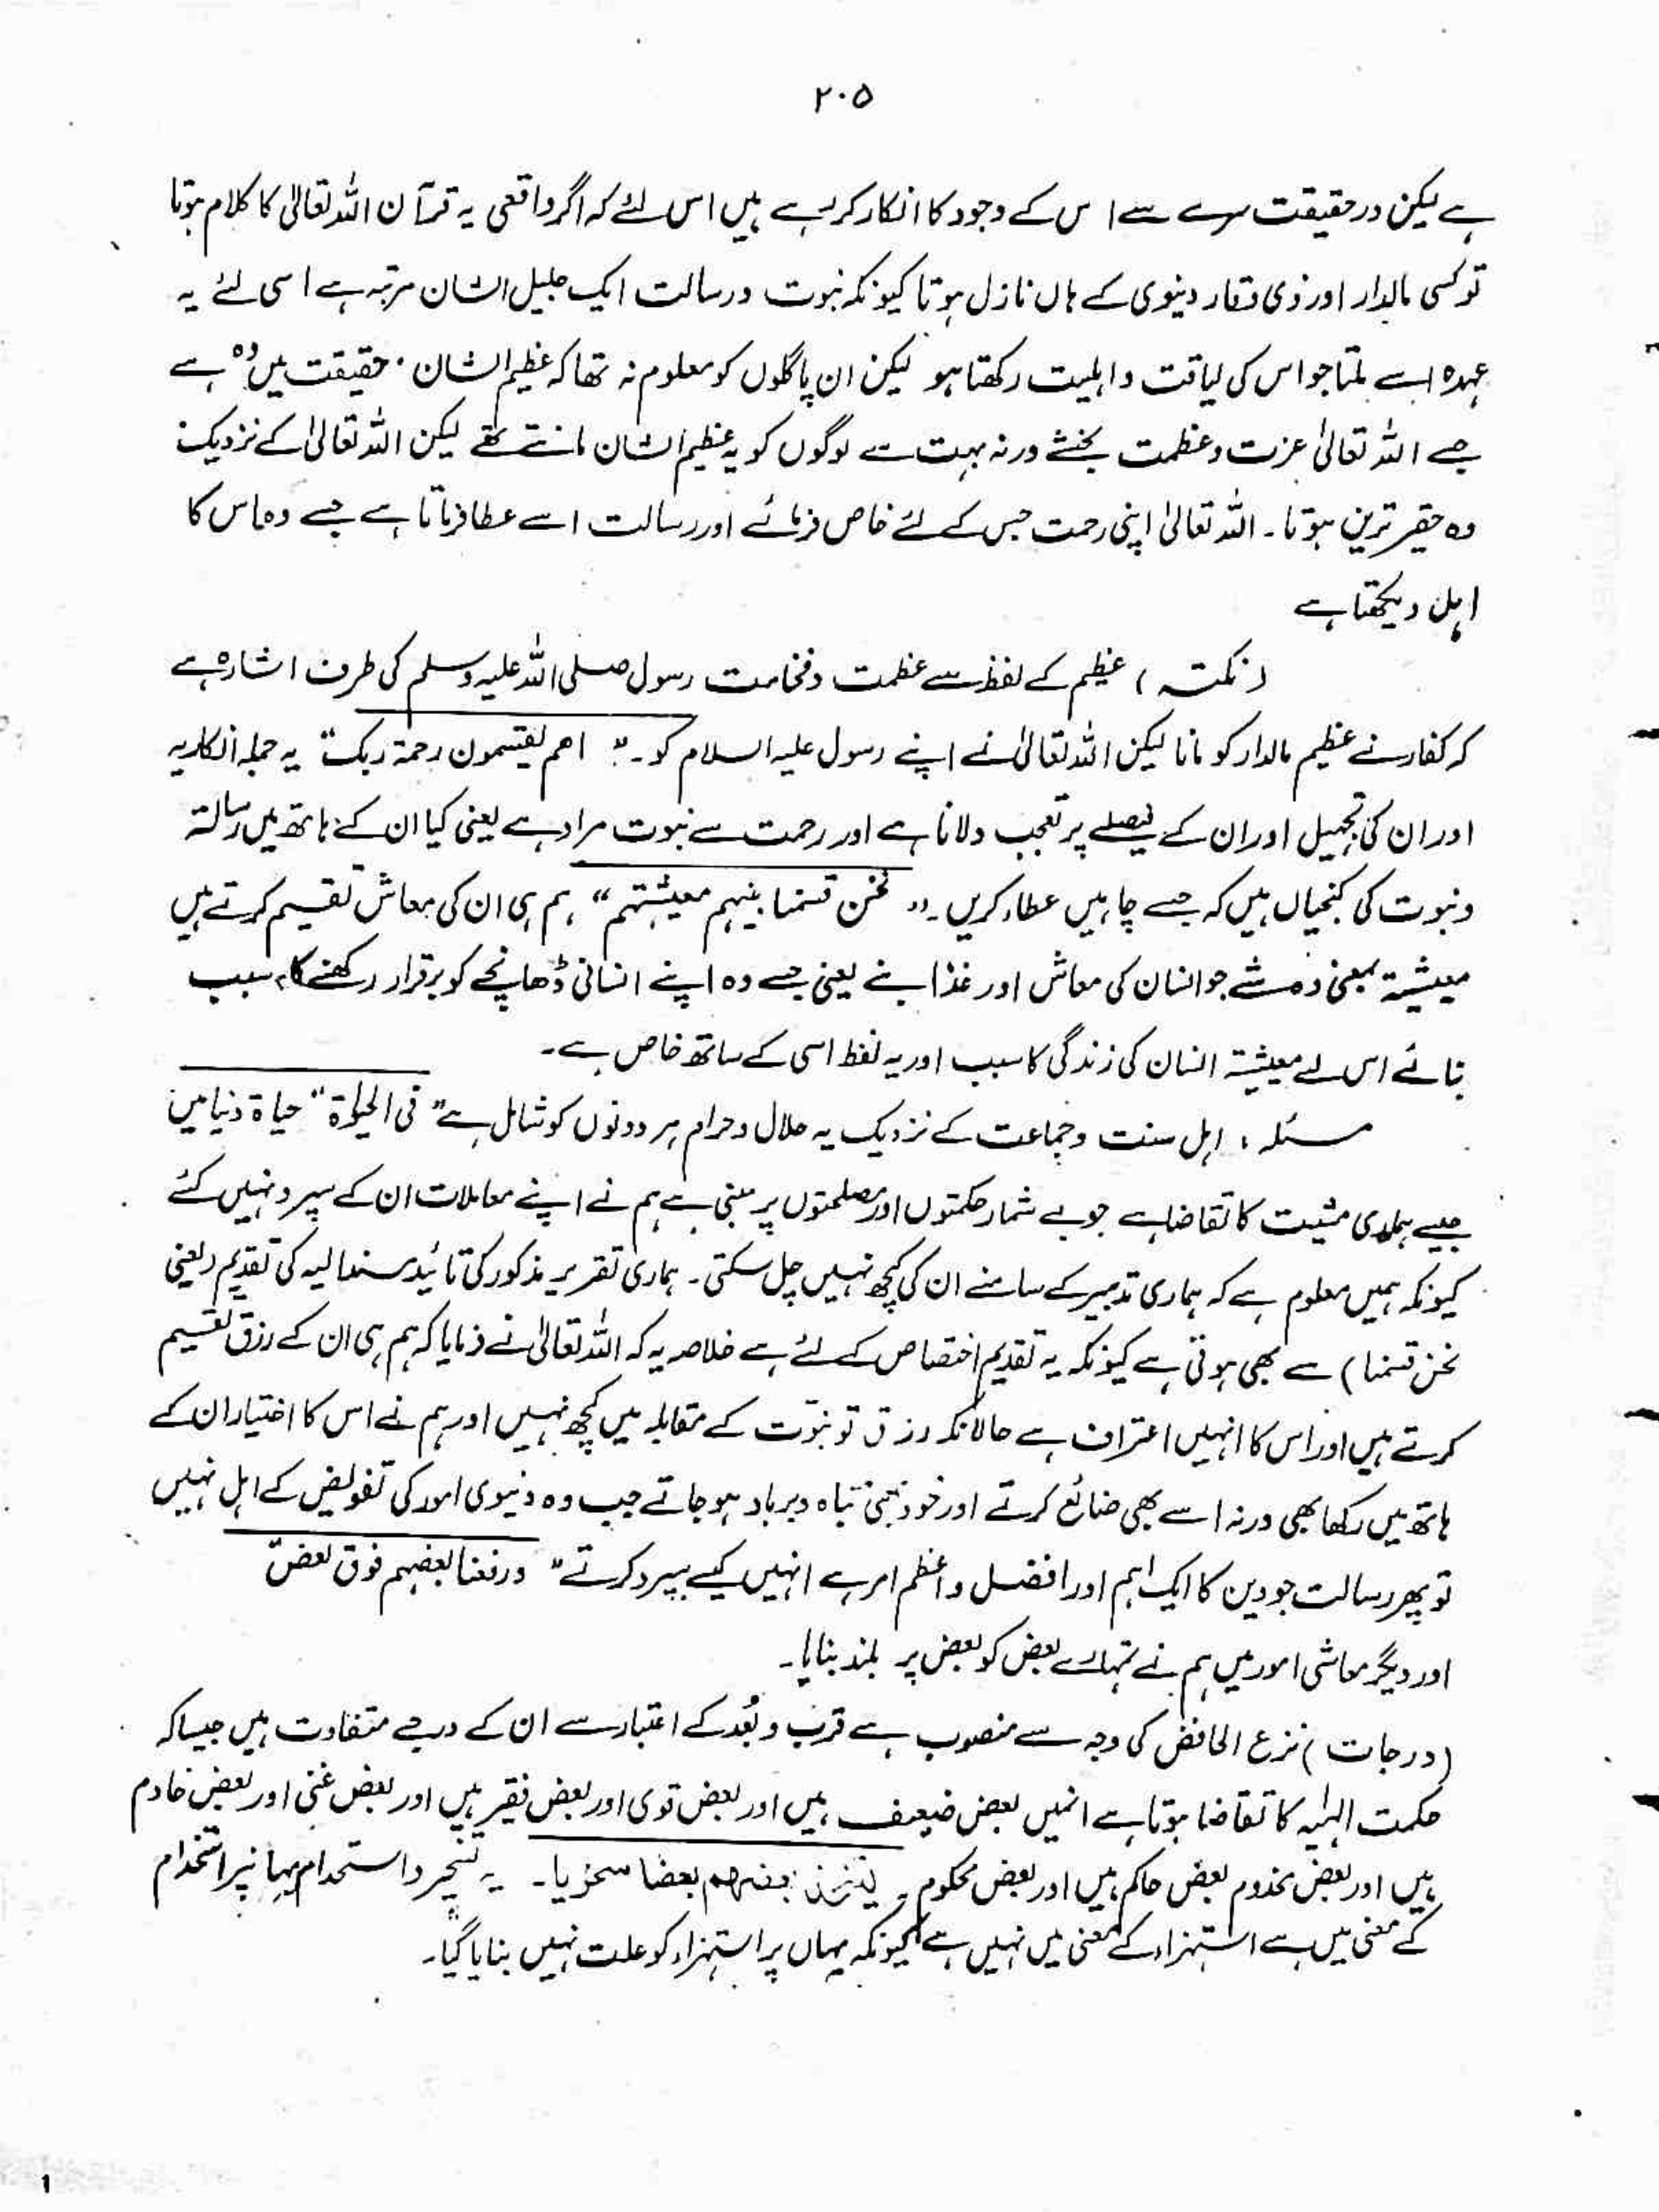 ۲۰۵
ہے لیکن درحقیقت سرے سے اس کے وجود کا انکار کر رہے ہیں اس لئے کہ اگر واقعی یہ قرآن اللہ تعالیٰ کا کلام ہوتا
تو کسی مالدار اور ذی وقار دینوی کے ہاں نازل ہوتا کیونکہ نبوت ورسالت ایک جلیل الشان مرتبہ ہے اسی لئے یہ
عہدہ اسے ملتا جو اس کی لیاقت واہلیت رکھتا ہو لیکن ان پاگلوں کو معلوم نہ تھا کہ عظیم الشان حقیقت میں وہ ہے
جسے اللہ تعالیٰ عزت وعظمت بخشے ورنہ بہت سے لوگوں کو یہ عظیم الشان مانتے تھے لیکن اللہ تعالیٰ کے نزدیک
وہ حقیر ترین ہوتا۔ اللہ تعالیٰ اپنی رحمت جس کے لئے خاص فرمائے اور رسالت اسے عطا فرماتا ہے جسے وہ اس کا
اہل دیکھتا ہے
(نکتہ) عظیم کے لفظ سے عظمت وفخامت رسول صلی اللہ علیہ وسلم کی طرف اشارہ ہے
کہ کفار نے عظیم مالدار کو مانا لیکن اللہ تعالیٰ نے اپنے رسول علیہ السلام کو۔ " اھم یقسمون رحمۃ ربک" یہ جملہ انکاریہ
اور ان کی تجہیل اور ان کے فیصلے پر تعجب دلانا ہے اور رحمت سے نبوت مراد ہے یعنی کیا ان کے ہاتھ میں رسالتہ
ونبوت کی کنجیاں ہیں کہ جسے چاہیں عطاء کریں۔ "نحن قسمنا بینہم معیشتہم" ہم ہی ان کی معاش تقسیم کرتے ہیں
معیشۃ بمعنی وہ شے جو انسان کی معاش اور غذا بنے یعنی جسے وہ اپنے انسانی ڈھانچے کو برقرار رکھنے کا سبب
بنائے اس لے معیشۃ انسان کی زندگی کا سبب اور یہ لفظ اسی کے ساتھ خاص ہے۔
مسئلہ: اہل سنت وجماعت کے نزدیک یہ حلال وحرام ہر دونوں کو شامل ہے "فی الحیٰوۃ" حیاۃ دنیا میں
جیسے ہماری مشیت کا تقاضا ہے جو بے شمار حکمتوں اور مصلحتوں پر مبنی ہے ہم نے اپنے معاملات ان کے سپرد نہیں کئے
کیونکہ ہمیں معلوم ہے کہ ہماری تدبیر کے سامنے ان کی کچھ نہیں چل سکتی۔ ہماری تقریر مذکور کی تائید مسندالیہ کی تقدیم (یعنی
نحن قسمنا) سے بھی ہوتی ہے کیونکہ یہ تقدیم اختصاص کے لئے ہے خلاصہ یہ کہ اللہ تعالیٰ نے فرمایا کہ ہم ہی ان کے رزق تقسیم
کرتے ہیں اور اس کا انہیں اعتراف ہے حالانکہ رزق تو نبوّت کے مقابلہ میں کچھ نہیں اور ہم نے اس کا اختیار ان کے
ہاتھ میں رکھا بھی ورنہ اسے بھی ضائع کرتے اور خود بھی تباہ وبرباد ہو جاتے جب وہ دنیوی امور کی تفویض کے اہل نہیں
تو پھر رسالت جو دین کا ایک اہم اور افضل واعظم امر ہے انہیں کیسے سپرد کرتے" ورفعنا بعضہم فوق بعض"
اور دیگر معاشی امور میں ہم نے تمہارے بعض کو بعض پر بلند بنایا۔
(درجات) نزع الخافض کی وجہ سے منصوب ہے قرب وبُعد کے اعتبار سے ان کے درجے متفاوت ہیں جیسا کہ
حکمت الہٰیہ کا تقاضا ہوتا ہے انمیں بعض ضعیف ہیں اور بعض قوی اور بعض فقیر ہیں اور بعض غنی اور بعض خادم
ہیں اور بعض مخدوم بعض حاکم ہیں اور بعض محکوم۔ لیتخذ بعضھم بعضا سخریا۔ یہ تسخیر واستخدام یہاں پر استخدام
کے معنی میں ہے استہزاء کے معنی میں نہیں ہے کیونکہ یہاں پر استہزاء کو علت نہیں بنایا گیا۔
1